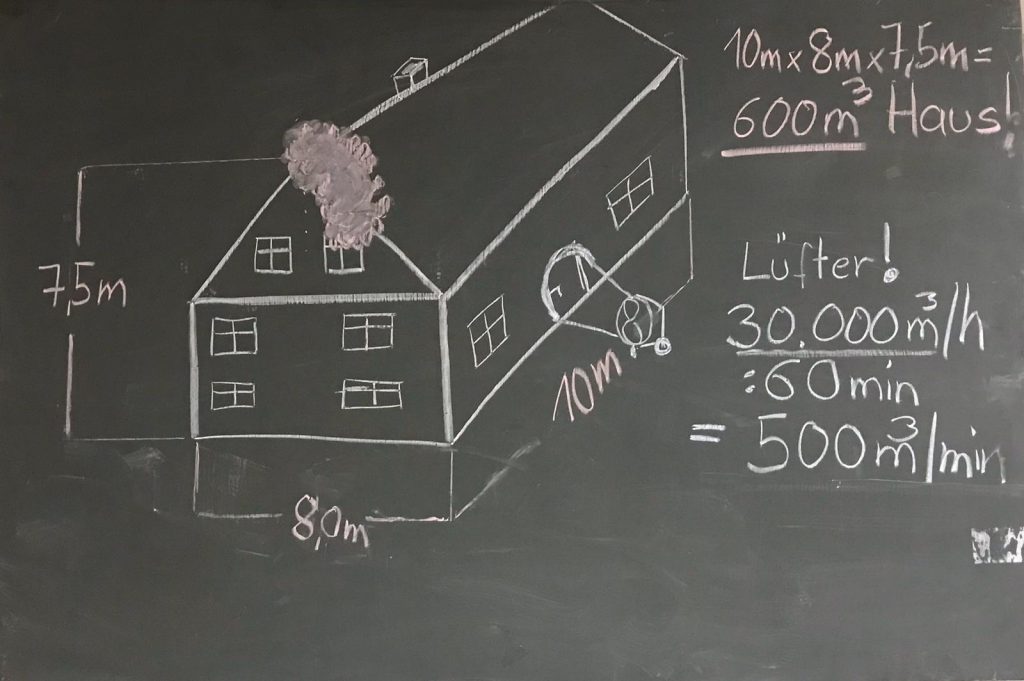 10m x 8m x 7,5m =
600m³ Haus!
7,5m
Lüfter!
30.000m³/h
:60min
= 500m³/min
10m
8,0m